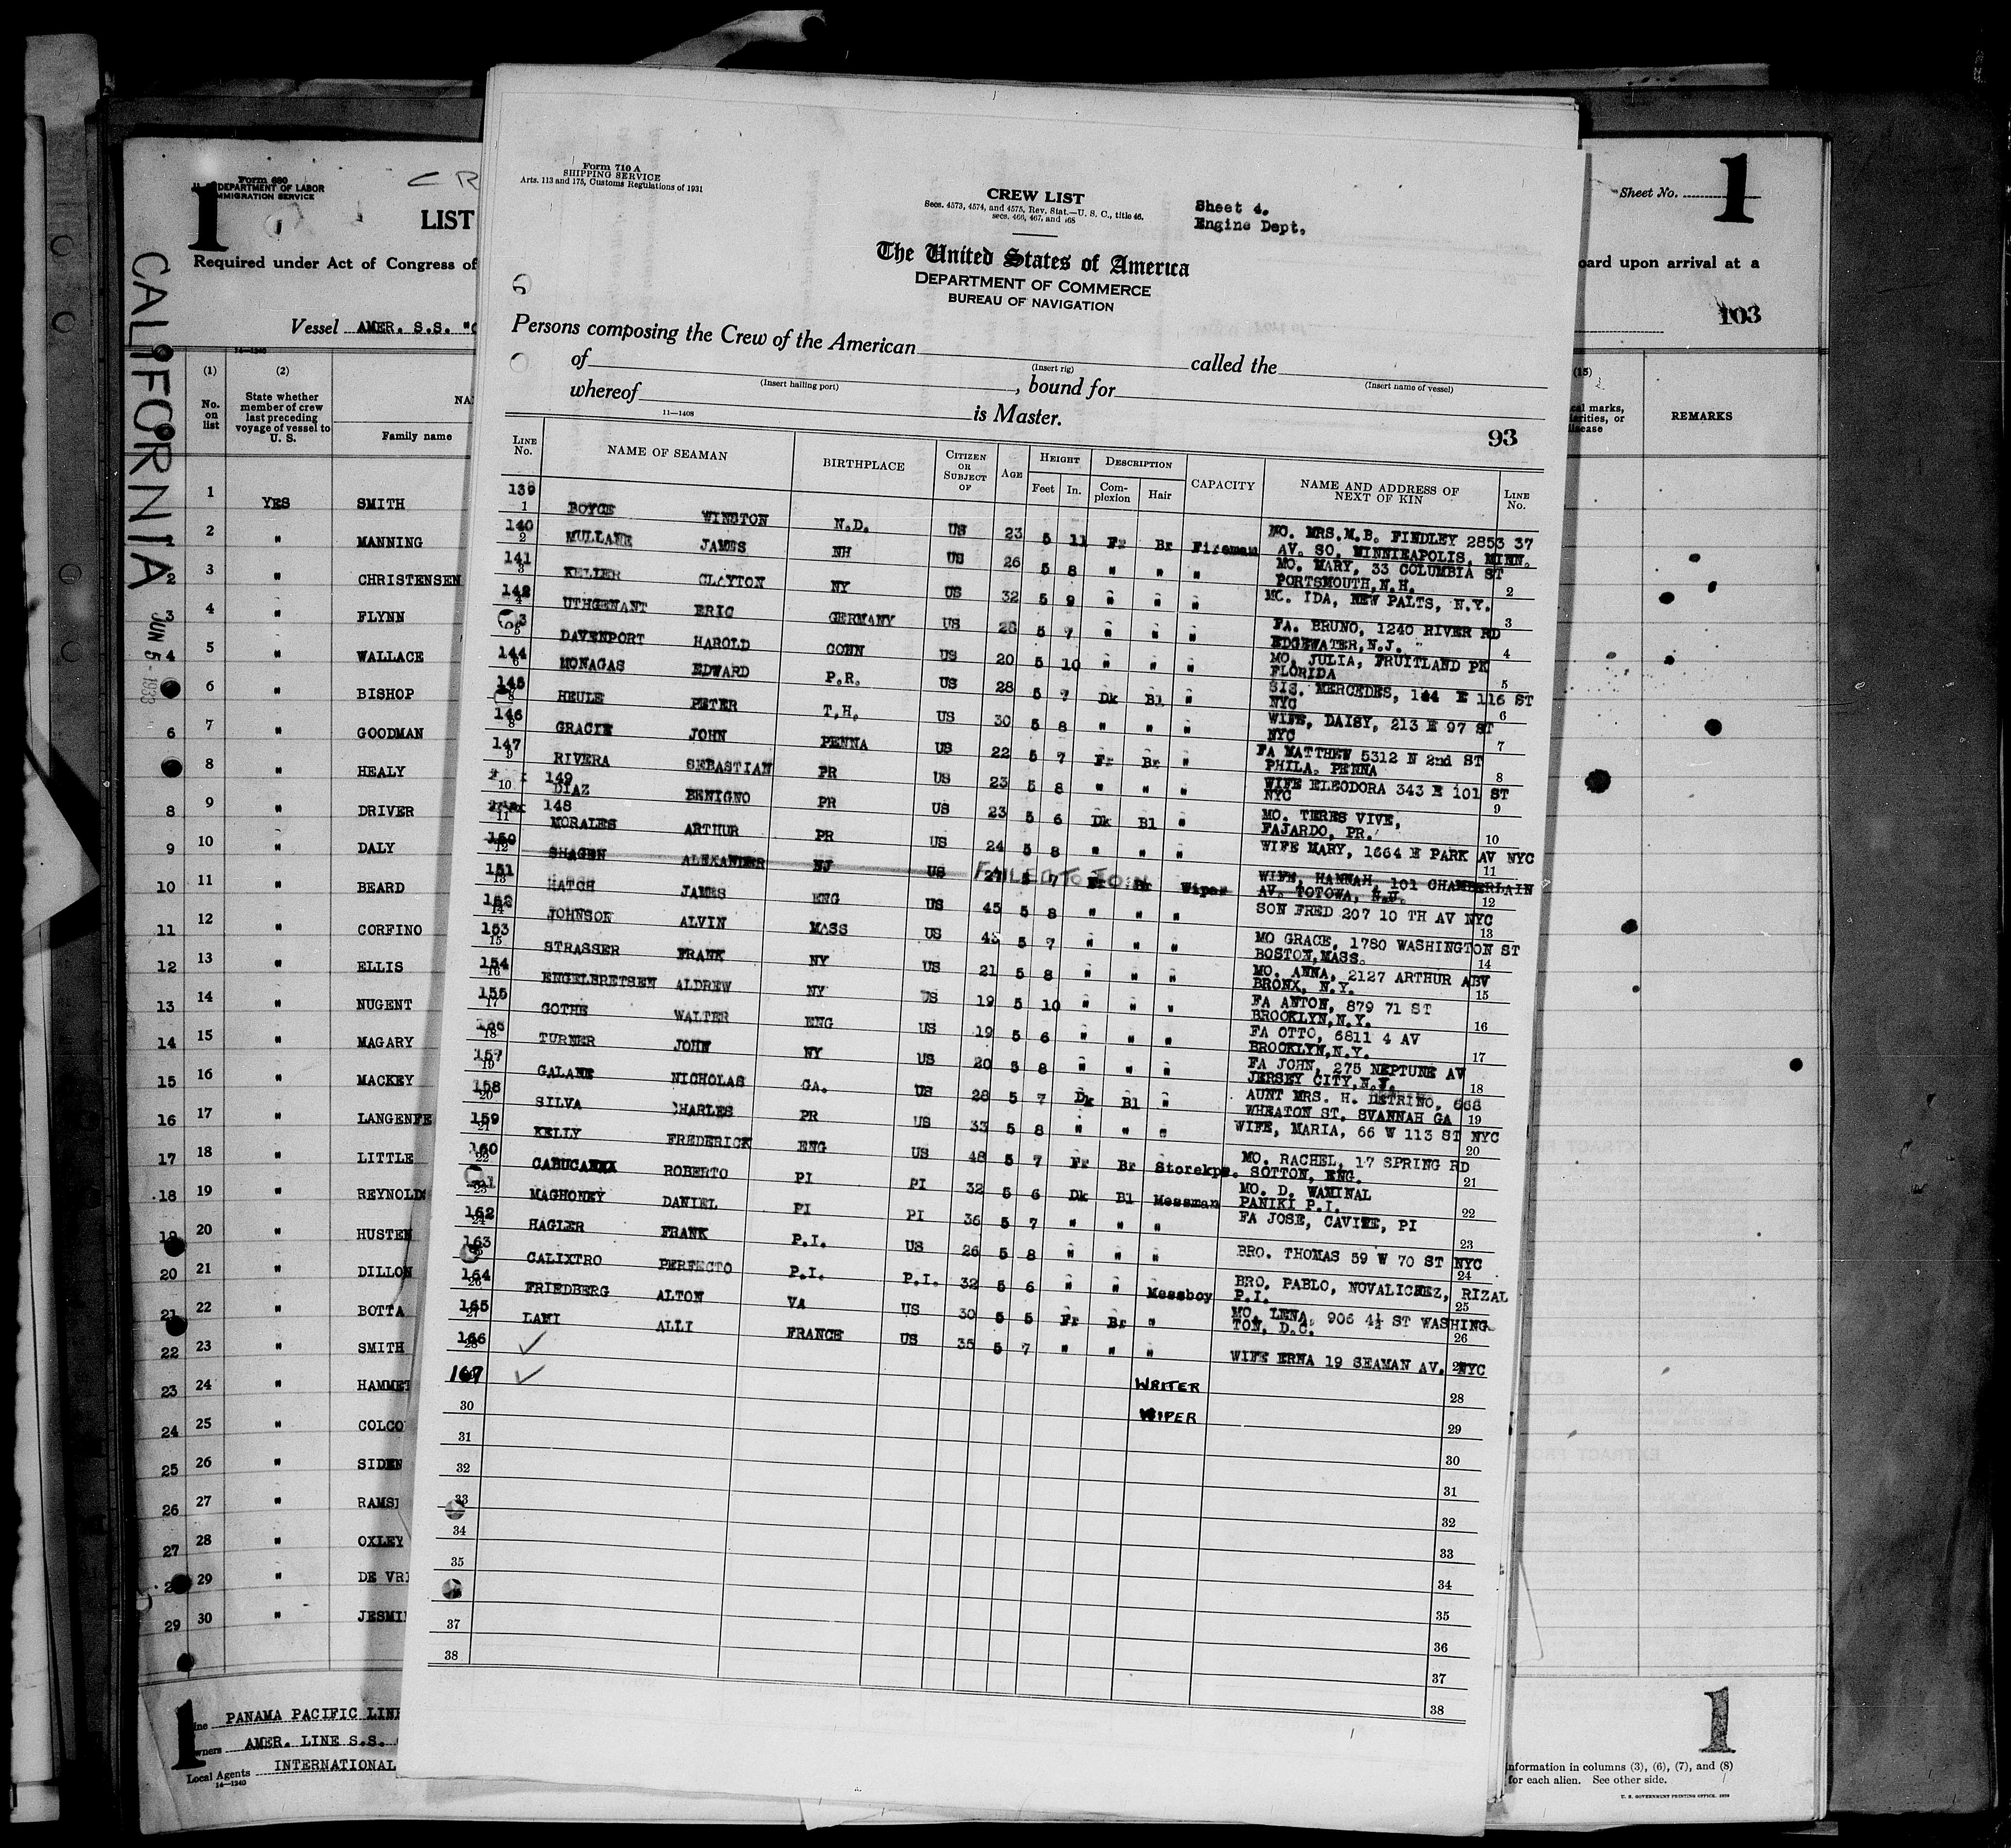 Form 680
U. S. DEPARTMENT OF LABOR
IMMIGRATION SERVICE
1
LIST
Required under Act of Congress of
Vessel AMER. S.S. "C
CALIFORNIA
JUN 5 - 1933
14-1240
(1) (2)
No. on list
State whether member of crew last preceding voyage of vessel to U. S.
Family name
1 YES SMITH
2 " MANNING
3 " CHRISTENSEN
4 " FLYNN
5 " WALLACE
6 " BISHOP
7 " GOODMAN
8 " HEALY
9 " DRIVER
10 " DALY
11 " BEARD
12 " CORFINO
13 " ELLIS
14 " NUGENT
15 " MAGARY
16 " MACKEY
17 " LANGENFE
18 " LITTLE
19 " REYNOLDS
20 " HUSTEN
21 " DILLON
22 " BOTTA
23 " SMITH
24 " HAMMET
25 " COLCO
26 " SIDEN
27 " RAMS
28 " OXLEY
29 " DE VRI
30 " JESMI
1
PANAMA PACIFIC LINE
AMER. LINE S.S.
Local Agents INTERNATIONAL
14-1240
Form 710 A
SHIPPING SERVICE
Arts. 113 and 175, Customs Regulations of 1931
CREW LIST
Secs. 4573, 4574, and 4575, Rev. Stat.—U. S. C., title 46,
secs. 466, 467, and 468
Sheet 4.
Engine Dept.
The United States of America
DEPARTMENT OF COMMERCE
BUREAU OF NAVIGATION
Persons composing the Crew of the American called the
(Insert rig) (Insert name of vessel)
of , bound for
(Insert hailing port)
whereof is Master.
11—1408
93
LINE No. NAME OF SEAMAN BIRTHPLACE CITIZEN OR SUBJECT OF AGE HEIGHT Feet In. DESCRIPTION Complexion Hair CAPACITY NAME AND ADDRESS OF NEXT OF KIN LINE No.
139 1 BOYCE WINSTON N.D. US 23 5 11 Fr Br Fireman MO. MRS.M.B. FINDLEY 2853 37
AV. SO. MINNIEAPOLIS, MINN.
140 2 MULLANE JAMES NH US 26 5 8 " " " MO. MARY, 33 COLUMBIA ST
PORTSMOUTH,N.H. 2
141 3 KELLER CLAYTON NY US 32 5 9 " " " MO. IDA, NEW PALTS, N.Y. 3
142 4 UTHGENANT ERIC GERMANY US 28 5 7 " " " FA. BRUNO, 1240 RIVER RD
EDGEWATER,N.J. 4
5 DAVENPORT HAROLD CONN US 20 5 10 " " " MO. JULIA, FRUITLAND PK
FLORIDA 5
144 6 MONAGAS EDWARD P.R. US 28 5 7 Dk Bl " SIS. MERCEDES, 144 E 116 ST
NYC 6
145 HEULE PETER T.H. US 30 5 8 " " " WIFE, DAISY, 213 E 97 ST
NYC 7
146 8 GRACIE JOHN PENNA US 22 5 7 Fr Br " FA MATTHEW 5312 N 2nd ST
PHILA. PENNA 8
147 9 RIVERA SEBASTIAN PR US 23 5 8 " " " WIFE ELEODORA 343 E 101 ST
NYC 9
149 10 DIAZ BENIGNO PR US 23 5 6 Dk Bl " MO. TERES VIVE,
FAJARDO, PR. 10
148 11 MORALES ARTHUR PR US 24 5 8 " " " WIFE MARY, 1664 E PARK AV NYC 11
150 12 SHAGEN ALEXANDER NJ US FAILED TO JOIN 5 7 Fr Br Wiper WIFE, HANNAH, 101 CHAMBERLAIN
AV. TOTOWA, N.J. 12
151 13 HATCH JAMES ENG US 45 5 8 " " " SON FRED 207 10 TH AV NYC 13
152 14 JOHNSON ALVIN MASS US 5 7 " " " MO GRACE, 1780 WASHINGTON ST
BOSTON,MASS. 14
153 15 STRASSER FRANK NY US 21 5 8 " " " MO. ANNA, 2127 ARTHUR ABV
BRONX, N.Y. 15
154 16 ENGELBRETSEN ALDREW NY US 19 5 10 " " " FA ANTON, 879 71 ST
BROOKLYN,N.Y. 16
155 17 GOTHE WALTER ENG US 19 5 6 " " " FA OTTO, 6811 4 AV
BROOKLYN,N.Y. 17
156 18 TURNER JOHN NY US 20 5 8 " " " FA JOHN, 275 NEPTUNE AV
JERSEY CITY,N.J. 18
157 19 GALANE NICHOLAS GA. US 28 5 7 Dk Bl " AUNT MRS. H. DETRINO, 668
WHEATON ST. SVANNAH GA 19
158 20 SILVA CHARLES PR US 33 5 8 " " " WIFE, MARIA, 66 W 113 ST NYC 20
159 21 KELLY FREDERICK ENG US 48 5 7 Fr Br Storekpr. MO. RACHEL, 17 SPRING RD
SOTTON, ENG. 21
160 22 ROBERTO PI PI 32 5 6 Dk Bl Messman MO. D. WAMINAL
PANIKI P.I. 22
23 MAGHONEY DANIEL PI PI 36 5 7 " " " FA JOSE, CAVITE, PI 23
162 24 HAGLER FRANK P.I. US 26 5 8 " " " BRO. THOMAS 59 W 70 ST NYC 24
163 CALIXTRO PERFECTO P.I. P.I. 32 5 6 " " Messboy BRO. PABLO, NOVALICHEZ, RIZAL
P.I. 25
164 26 FRIEDBERG ALTON VA US 30 5 5 Fr Br " MO. LENA, 906 4½ ST WASHING
TON, D.C. 26
165 27 LAMI ALLI FRANCE US 35 5 7 " " " WIFE ERNA 19 SEAMAN AV. NYC
166 28 WRITER 28
167 WIPER 29
30 30
31 31
32 32
33 33
34 34
35 35
36
37 37
38 38
Sheet No. 1
oard upon arrival at a
103
(15)
cal marks,
arities, or
isease
REMARKS
1
nformation in columns (3), (6), (7), and (8)
for each alien. See other side.
U. S. GOVERNMENT PRINTING OFFICE